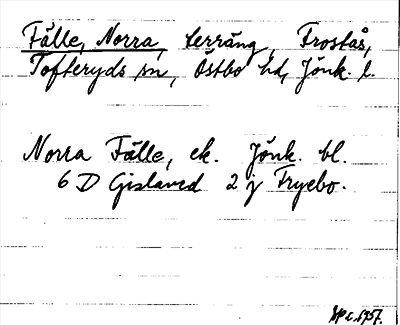 Fälle, Norra, terräng, Frostås,
Tofteryds sn, Östbo hd, Jönk. l.
Norra Fälle, ek. Jönk. bl.
6 D Gislaved 2 j Fryebo.
c. 1957.